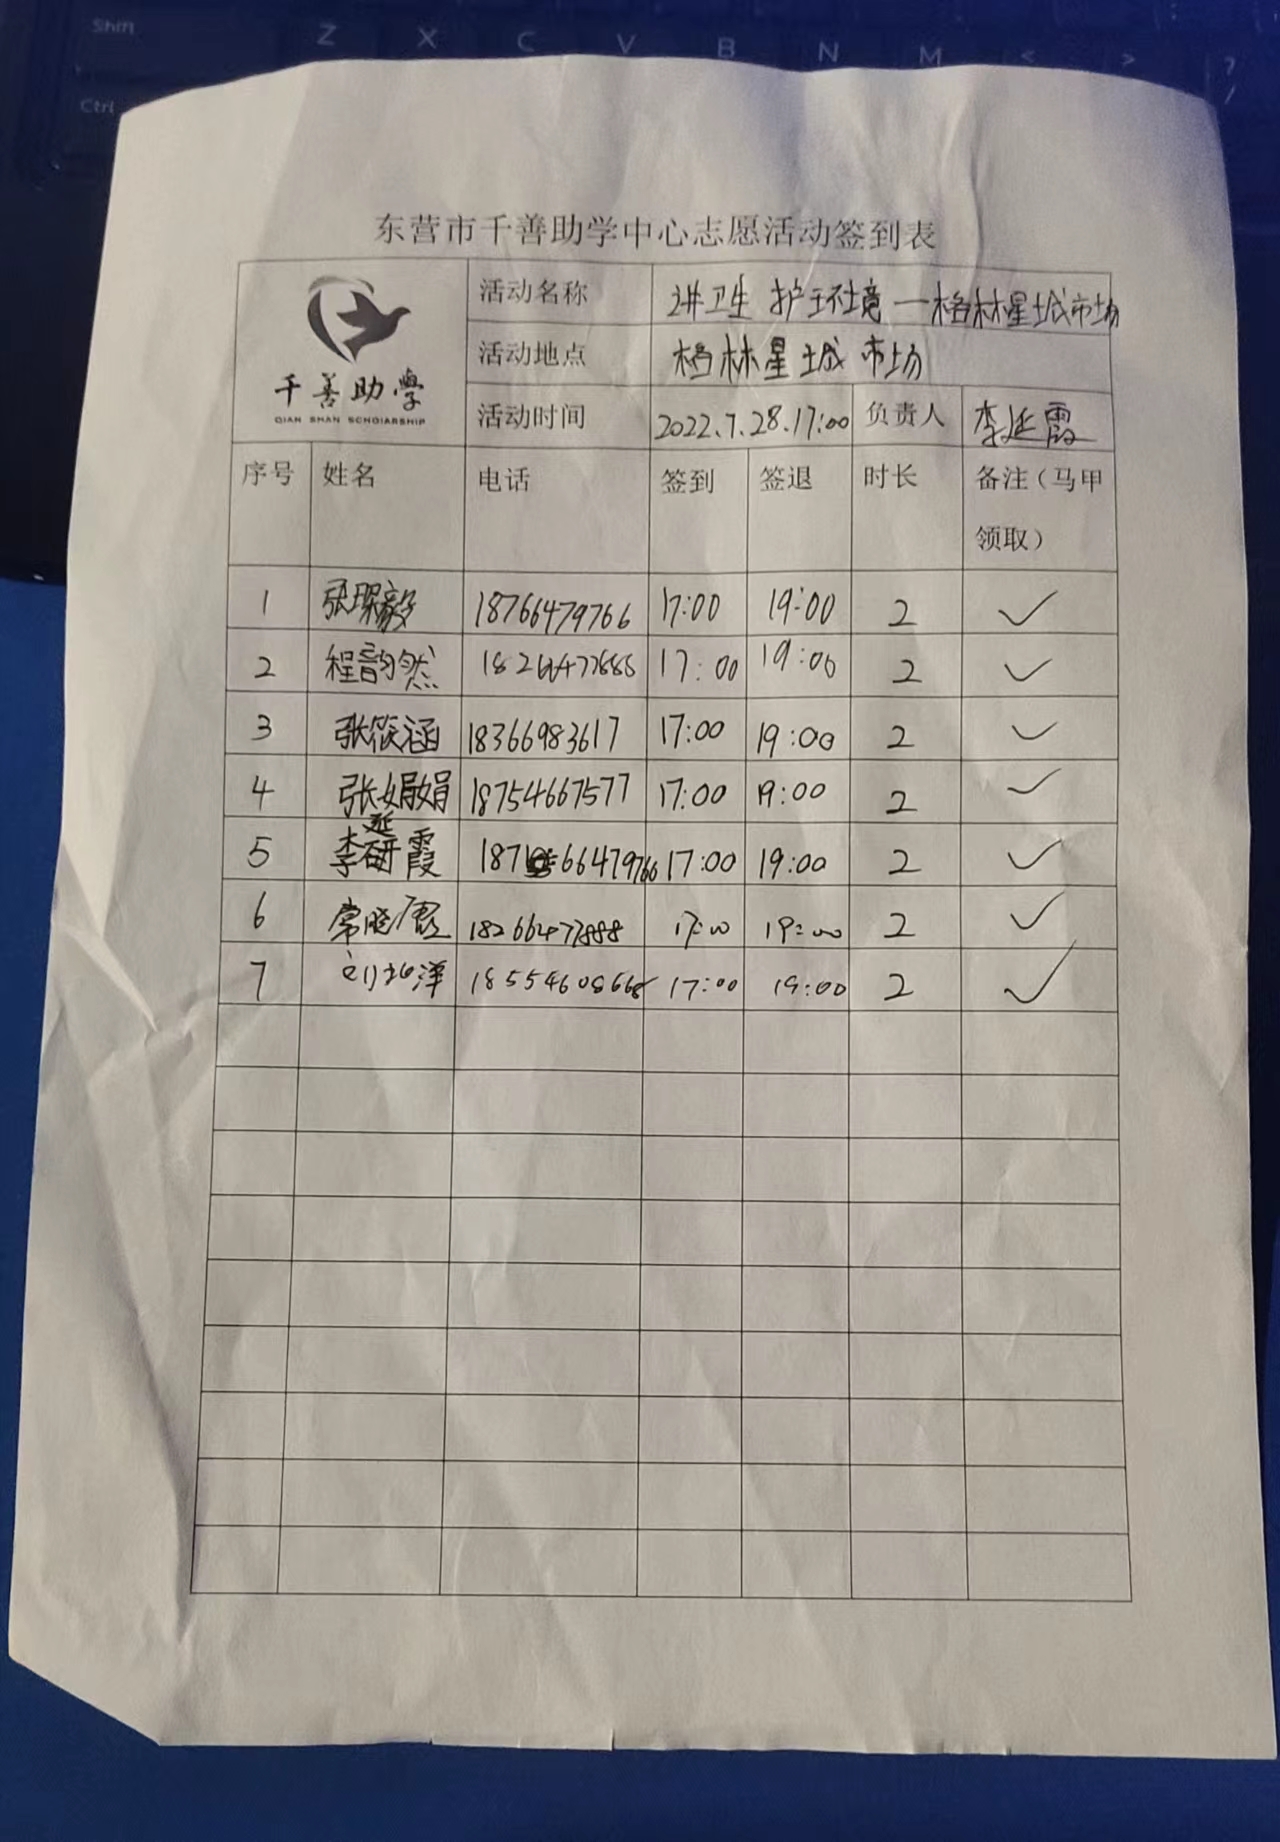 Shift
Z X C V B N M < > ?
Ctrl /
东营市千善助学中心志愿活动签到表
千善助学
QIAN SHAN SCHOIARSHIP
活动名称 讲卫生 护环境—格林星城市场
活动地点 格林星城市场
活动时间 2022.7.28.17:00 负责人 李延霞
序号 姓名 电话 签到 签退 时长 备注（马甲
领取）
1 张琛毅 18766479766 17:00 19:00 2 ✓
2 程韵然 18266477888 17:00 19:00 2 ✓
3 张筱涵 18366983617 17:00 19:00 2 ✓
4 张娟娟 18754667577 17:00 19:00 2 ✓
5 李延霞 187 66479766 17:00 19:00 2 ✓
6 常晓 18266477888 17:00 19:00 2 ✓
7 刘北洋 18554608668 17:00 19:00 2 ✓